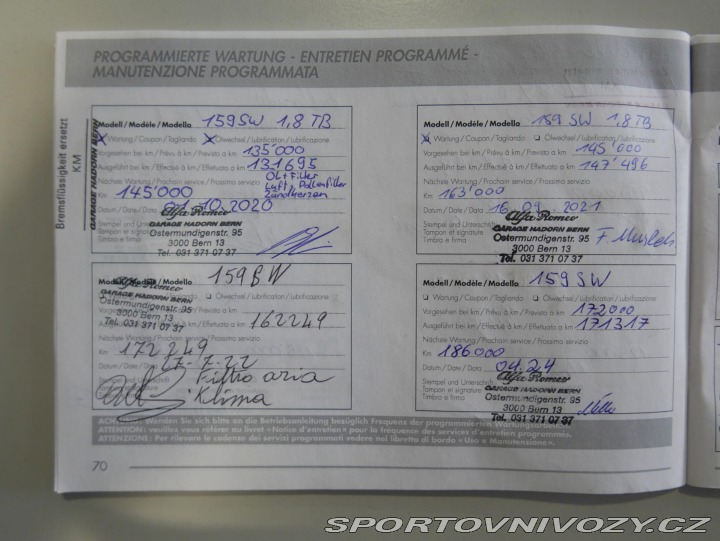 PROGRAMMIERTE WARTUNG - ENTRETIEN PROGRAMMÉ -
MANUTENZIONE PROGRAMMATA
Bremsflüssigkeit ersetzt
KM
GARAGE HADORN BERN
Modell / Modèle / Modello 159SW 1,8 TB
x Wartung / Coupon / Tagliando x Ölwechsel / Lubrification / Lubrificazione
Vorgesehen bei km / Prévu à km / Previsto a km 135'000
Ausgeführt bei km / Effectué à km / Effettuato a km 131695
Nächste Wartung / Prochain service / Prossimo servizio
Öl + Filter
Luft / Pollenfilter
Zündkerzen
Km 145'000
Datum / Date / Data 01.10.2020
Alfa Romeo
Stempel und Unterschrift
Tampon et signature
Timbro e firma
GARAGE HADORN BERN
Ostermundigenstr. 95
3000 Bern 13
Tel. 031 371 07 37
Modell / Modèle / Modello 159 SW 1,8 TB
x Wartung / Coupon / Tagliando Ölwechsel / Lubrification / Lubrificazione
Vorgesehen bei km / Prévu à km / Previsto a km 145'000
Ausgeführt bei km / Effectué à km / Effettuato a km 147'496
Nächste Wartung / Prochain service / Prossimo servizio
Km 163'000
Datum / Date / Data 16.09.2021
Alfa Romeo
Stempel und Unterschrift
Tampon et signature
Timbro e firma
GARAGE HADORN BERN
Ostermundigenstr. 95
3000 Bern 13
Tel. 031 371 07 37
159BW
Alfa Romeo
GARAGE HADORN BERN
Ostermundigenstr. 95
3000 Bern 13
Tel. 031 371 07 37
Ölwechsel / Lubrification / Lubrificazione
162249
Nächste Wartung / Prochain service / Prossimo servizio
Km 172249
Datum / Date / Data 27-7-22
Stempel und Unterschrift
Filtro aria
Klima
Modell / Modèle / Modello 159 SW
Wartung / Coupon / Tagliando Ölwechsel / Lubrification / Lubrificazione
Vorgesehen bei km / Prévu à km / Previsto a km 172000
Ausgeführt bei km / Effectué à km / Effettuato a km 171317
Nächste Wartung / Prochain service / Prossimo servizio
Km 186000
Datum / Date / Data 04.24
Alfa Romeo
Stempel und Unterschrift
Tampon et signature
Timbro e firma
GARAGE HADORN BERN
Ostermundigenstr. 95
3000 Bern 13
Tel. 031 371 07 37
Wenden Sie sich bitte an die Betriebsanleitung bezüglich Frequenz der programmierten Wartungsarbeiten.
ATTENTION: veuillez vous référer au livret «Notice d'entretien» pour la fréquence des services d'entretien programmés.
ATTENZIONE: Per rilevare le cadenze dei servizi programmati vedere nel libretto di bordo «Uso e Manutenzione».
70
SPORTOVNIVOZY.CZ